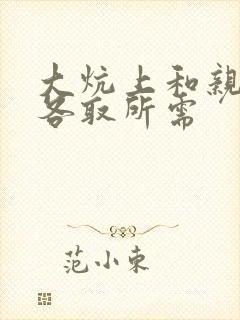 大炕上和親
各取所需
范小東